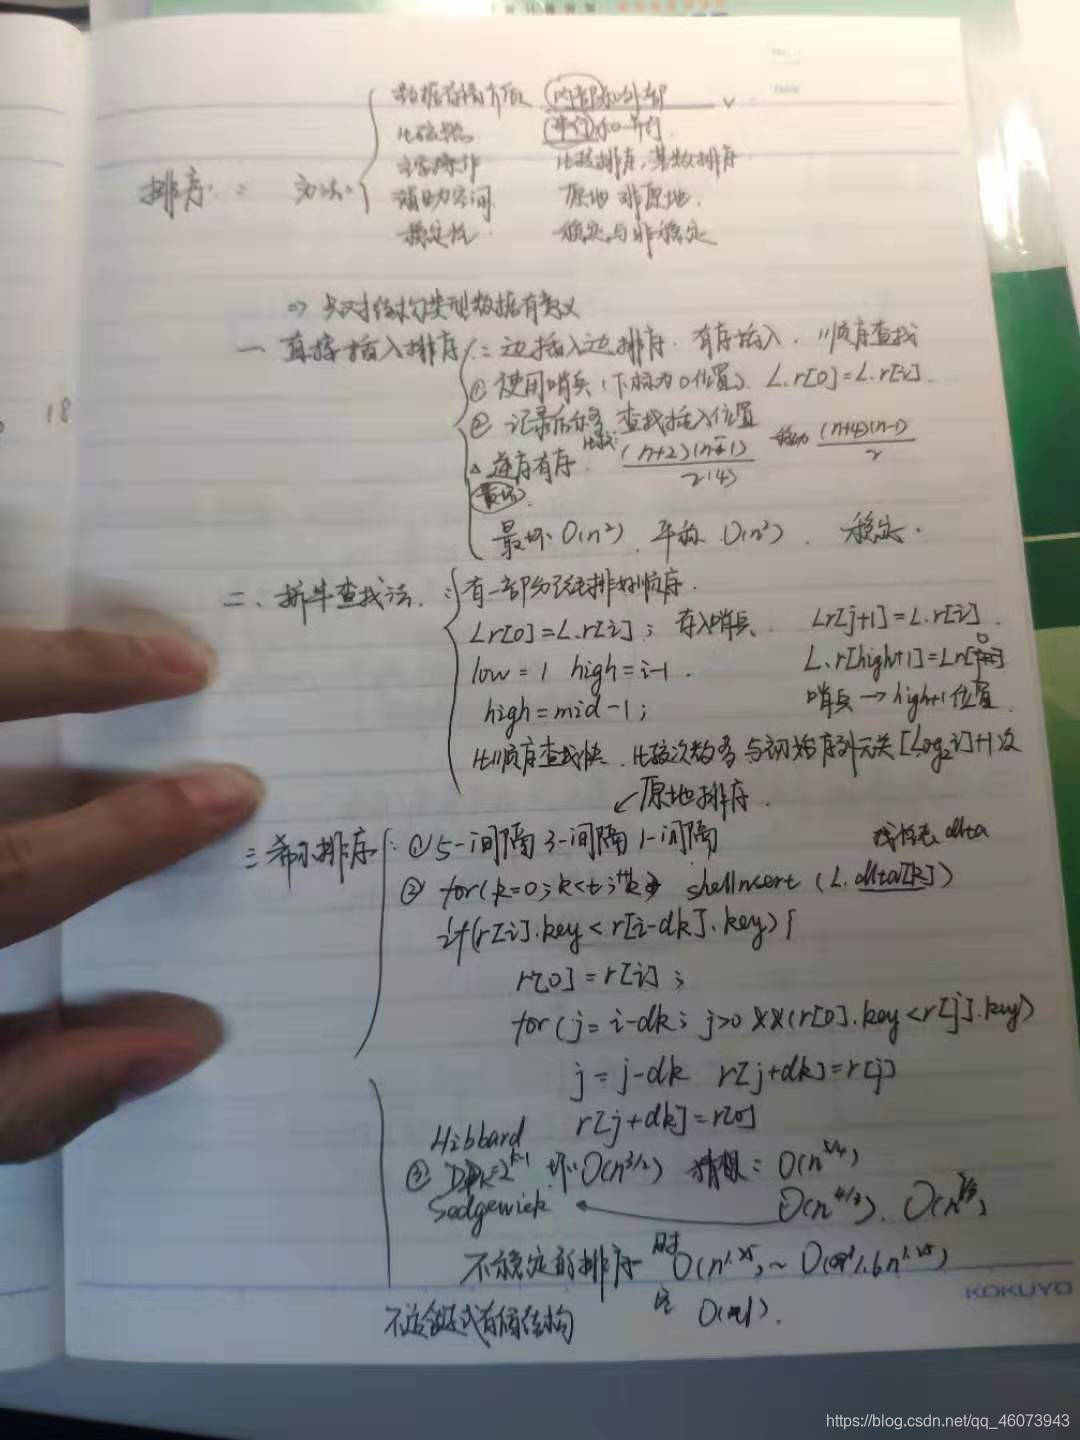 数据存储介质 内部和外部
比较器 串行和并行
主要操作 比较排序,基数排序
排序: 方法: 辅助空间 原地 非原地.
稳定性 稳定与非稳定
⇒ 只对结构类型数据有意义
一 直接插入排序: 边插入边排序. 有序插入. 顺序查找
① 使用哨兵(下标为0位置). L.r[0]=L.r[i].
② 记录后移 查找插入位置
△ 逆序有序 比较: (n+2)(n-1)/2(4) 移动 (n+4)(n-1)/2
最坏
最坏 O(n²). 平均 O(n²). 稳定.
二、折半查找法: 有一部分已经排好顺序.
Lr[0]=L.r[i]; 存入哨兵 Lr[j+1]=L.r[i].
low=1 high=i-1. L.r[high+1]=Lr[0]
high=mid-1; 哨兵→high+1位置
比顺序查找快. 比较次数多 与初始序列无关 [Log₂i]+1次
↙原地排序.
三 希尔排序: ①5-间隔 3-间隔 1-间隔 线性表 dlta
② for(k=0;k<t;++k) shellnsert (L.dlta[k])
if(r[i].key<r[i-dk].key){
r[0]=r[i];
for(j=i-dk; j>0 &&(r[0].key<r[j].key)
j=j-dk r[j+dk]=r[j]
r[j+dk]=r[0]
Hibbard
③ Dk=2^k-1 坏 O(n^3/2) 猜想: O(n^5/4)
Sedgewick O(n^4/3). O(n^7/6)
不稳定的排序 时 O(n^1.25)~O(1.6n^1.25)
空 O(1).
不适合链式存储结构
KOKUYO
https://blog.csdn.net/qq_46073943